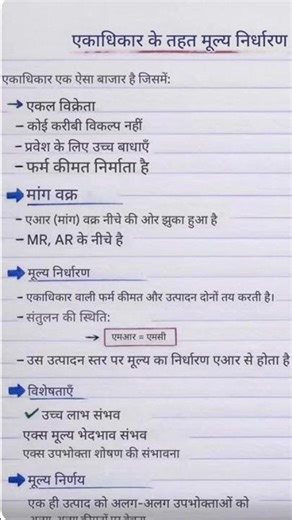 एकाधिकार के तहत मूल्य निर्धारण
एकाधिकार एक ऐसा बाजार है जिसमें:
→ एकल विक्रेता
– कोई करीबी विकल्प नहीं
– प्रवेश के लिए उच्च बाधाएँ
– फर्म कीमत निर्माता है
➡ मांग वक्र
– एआर (मांग) वक्र नीचे की ओर झुका हुआ है
– MR, AR के नीचे है
➡ मूल्य निर्धारण
– एकाधिकार वाली फर्म कीमत और उत्पादन दोनों तय करती है।
– संतुलन की स्थिति:
→ एमआर = एमसी
– उस उत्पादन स्तर पर मूल्य का निर्धारण एआर से होता है
➡ विशेषताएँ
✓ उच्च लाभ संभव
एक्स मूल्य भेदभाव संभव
एक्स उपभोक्ता शोषण की संभावना
➡ मूल्य निर्णय
एक ही उत्पाद को अलग-अलग उपभोक्ताओं को